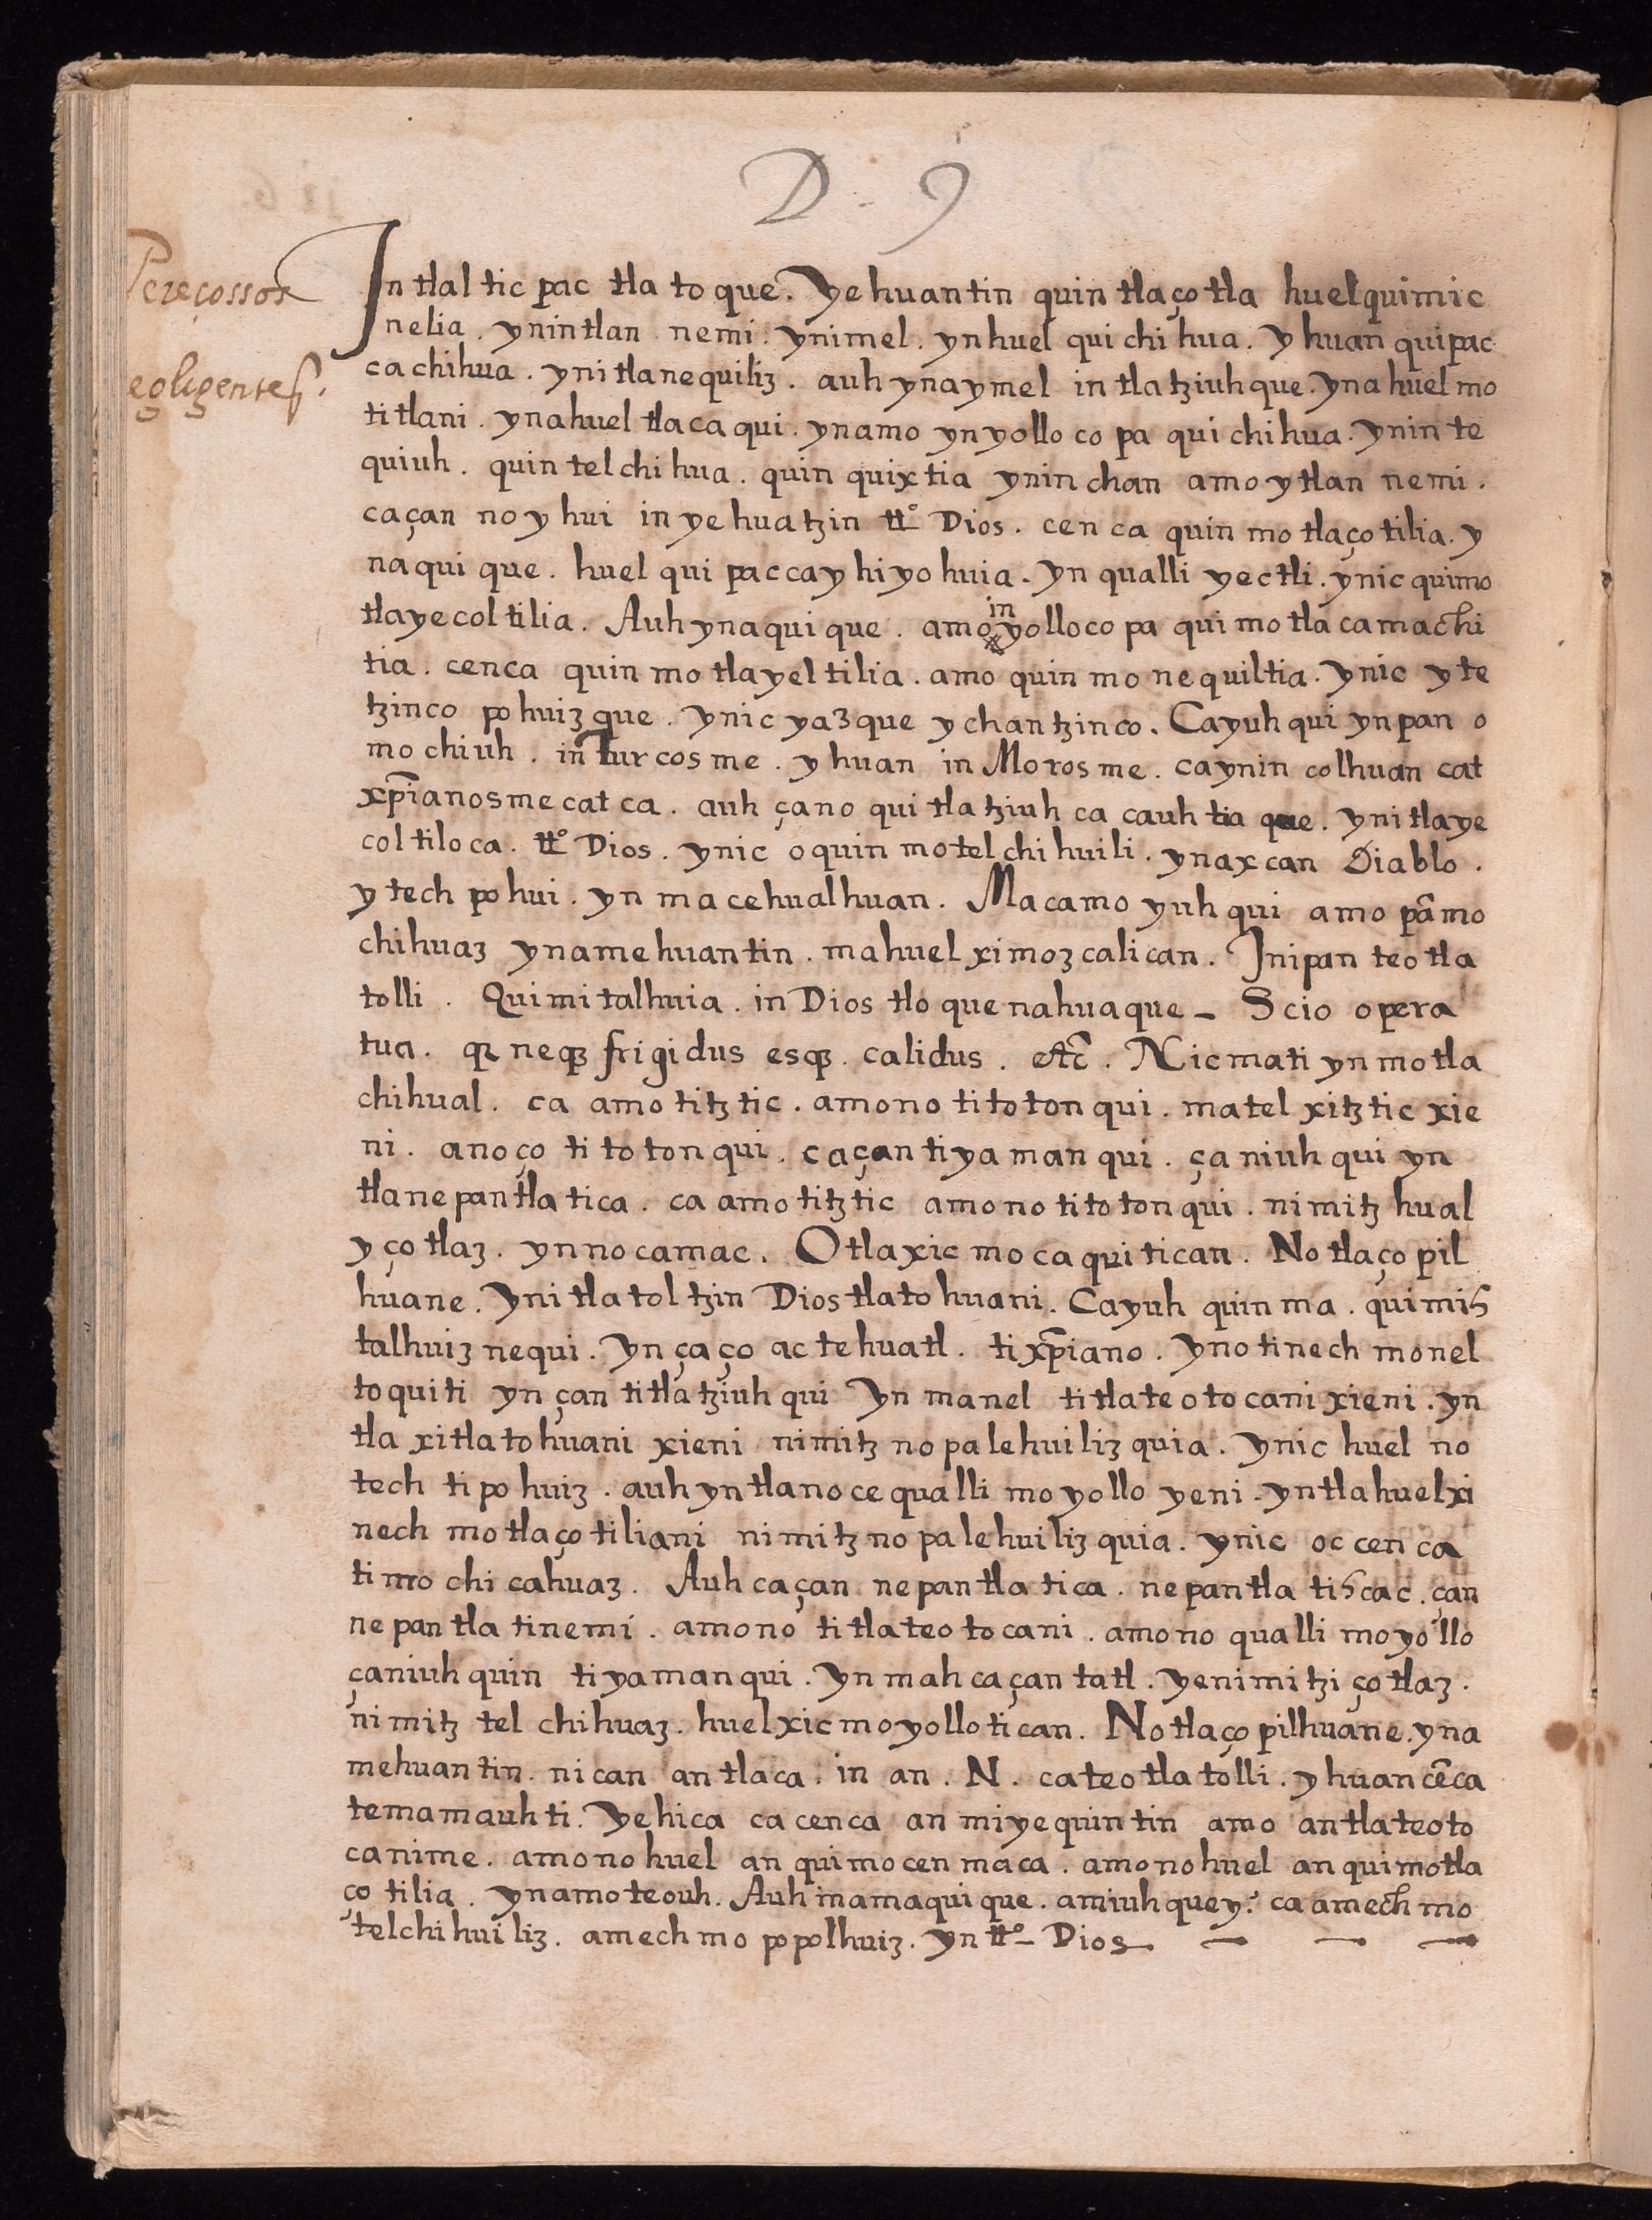 D. 9
Pereçossos
egligentes.
In tlal tic pac tla to que. Ye huantin quin tlaço tla huel quimic
nelia. ynintlan nemi. ynimel. ynhuel qui chi hua. y huan quipac
ca chihua. ynitlanequiliz. auh ynaymel in tlatziuhque. ynahuel mo
titlani. ynahuel tlaca qui. ynamo yn yollo co pa qui chihua. ynin te
quiuh. quin tel chi hua. quin quixtia ynin chan amo ytlan nemi.
caçan no y hui in ye huatzin tt.º Dios. cen ca quin mo tlaço tilia. y
naqui que. huel qui paccay hiyo huia. yn qualli yectli. ynic quimo
tlayecoltilia. Auh ynaqui que. amo in yolloco pa qui mo tla camachi
tia. cenca quin mo tlayel tilia. amo quin mo nequiltia. ynic y te
tzinco po huiz que. ynic yazque y chantzinco. Cayuh qui ynpan o
mo chiuh. in Turcos me. y huan in Moros me. caynin colhuan cat
xp̃ianosme cat ca. auh çano qui tla tziuh ca cauh tia que. ynitlaye
coltiloca. tt.º Dios. ynic o quin motel chi huili. ynaxcan Diablo.
y tech po hui. yn ma cehualhuan. Macamo yuh qui amo pãmo
chihuaz ynamehuantin. mahuel ximozcalican. Inipan teo tla
tolli. Quimitalhuia. in Dios tlo que nahuaque - Scio opera
tua. q neqȝ frigidus esqȝ. calidus. etc̃. Nicmati yn motla
chihual. ca amo titz tic. amono titotonqui. matel xitztic xie
ni. anoço ti to tonqui. caçan tiyamanqui. çaniuh qui yn
tlanepantla tica. ca amo titztic amono titotonqui. nimitz hual
yço tlaz. ynnocamac. Otlaxic mo ca quitican. No tlaço pil
huane. Yni tla tol tzin Dios tlatohuani. Cayuh quin ma. quimis
talhuiz nequi. Yn çaço ac tehuatl. ti xp̃iano. yno tinech monel
toquiti yn çan titlatziuh qui Yn manel titlateotocani xieni. yn
tla xitlatohuani xieni nimitz nopalehuiliz quia. ynic huel no
tech tipohuiz. auh yntlanoce qualli moyollo yeni. yntlahuelxi
nech motlaçotiliani nimitz nopalehuiliz quia. ynic oc cen ca
timo chi cahuaz. Auh caçan nepantla tica. nepantla tiscac. çan
nepantla tinemi. amono titlateo tocani. amono qualli moyollo
çaniuh quin tiyamanqui. yn mah caçan tatl. yenimitzi çotlaz.
nimitz tel chihuaz. huelxic moyollotican. Notlaço pilhuane. yna
mehuantin. nican antlaca. in an. N. cateotlatolli. yhuan cẽca
temamauhti. Yehica ca cenca an miyequintin amo antlateoto
canime. amono huel an quimocenmaca. amonohuel anquimotla
ço tilia. ynamoteouh. Auh inamaquique. amiuhquey. ca amech mo
telchihuiliz. amech mo popolhuiz. yn tt.º Dios